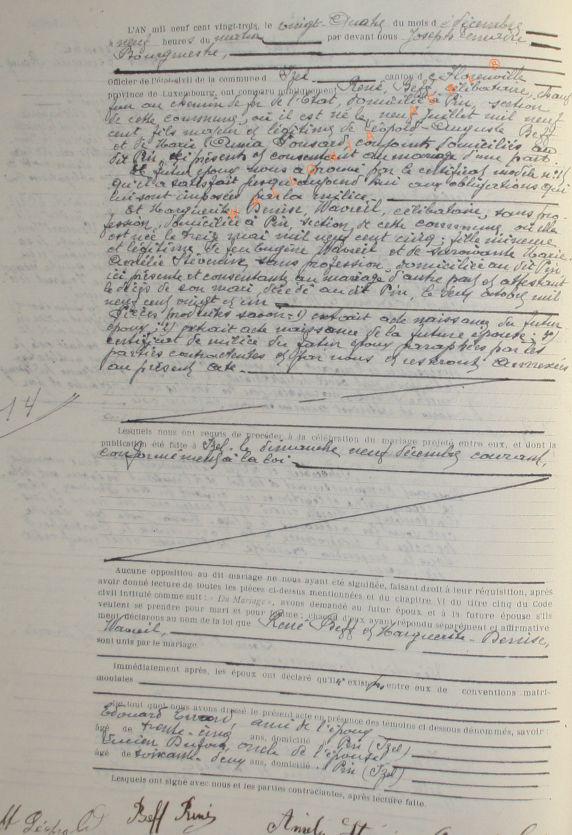 L'AN mil neuf cent vingt-trois, le vingt-quatre du mois de décembre
à neuf heures du matin par devant nous Joseph
Bourgmestre,
Officier de l'état-civil de la commune d'Izel canton de Florenville
province de Luxembourg, ont comparu publiquement René, Beff, célibataire,
au chemin de fer de l'Etat, domicilié à Pin, section
de cette commune, où il est né le neuf juillet mil neuf
cent, fils majeur et légitime de Léopold-Auguste Beff
et de Marie conjoints domiciliés au
dit Pin, ici présents et consentant au mariage d'une part.
Le futur époux nous a prouvé par le certificat modèle n°
qu'il a satisfait jusqu'aujourd'hui aux obligations qui
lui sont imposées par la milice.
Et Marguerite, Denise, Wavreil, célibataire, sans pro-
fession, domiciliée à Pin, section de cette commune, où elle
est née le treize mai mil neuf cent cinq, fille mineure
et légitime de feu Eugène Wavreil et de Marie-
sans profession, domiciliée au dit Pin
ici présente et consentante au mariage d'autre part et attestant
le décès de son mari, décédé au dit Pin, le octobre mil
neuf cent vingt et un
Pièces produites savoir: 1) extrait acte naissance du futur
époux; 2) extrait acte naissance de la future épouse; 3)
certificat de milice du futur époux paraphées par les
parties contractantes et par nous et resteront annexées
au présent acte.
14
Lesquels nous ont requis de procéder à la célébration du mariage projeté entre eux, et dont la
publication été faite à Izel, le dimanche neuf décembre courant,
conformément à la loi
Aucune opposition au dit mariage ne nous ayant été signifiée, faisant droit à leur réquisition, après
avoir donné lecture de toutes les pièces ci-dessus mentionnées et du chapitre VI du titre cinq du Code
civil intitulé comme suit : « Du Mariage », avons demandé au futur époux et à la future épouse s'ils
veulent se prendre pour mari et pour femme ; chacun d'eux ayant répondu séparément et affirmative
ment déclarons au nom de la loi que René Beff et Marguerite-Denise,
Wavreil,
sont unis par le mariage.
Immédiatement après, les époux ont déclaré qu'il n'existe pas entre eux de conventions matri-
moniales
de tout quoi nous avons dressé le présent acte en présence des témoins ci-dessous dénommés, savoir :
Edouard ami de l'époux
âgé de trente-cinq ans, domicilié à Pin (Izel)
Lucien Dufour, oncle de l'épouse
âgé de soixante-deux ans, domicilié à Pin (Izel)
Lesquels ont signé avec nous et les parties contractantes, après lecture faite.
Beff René